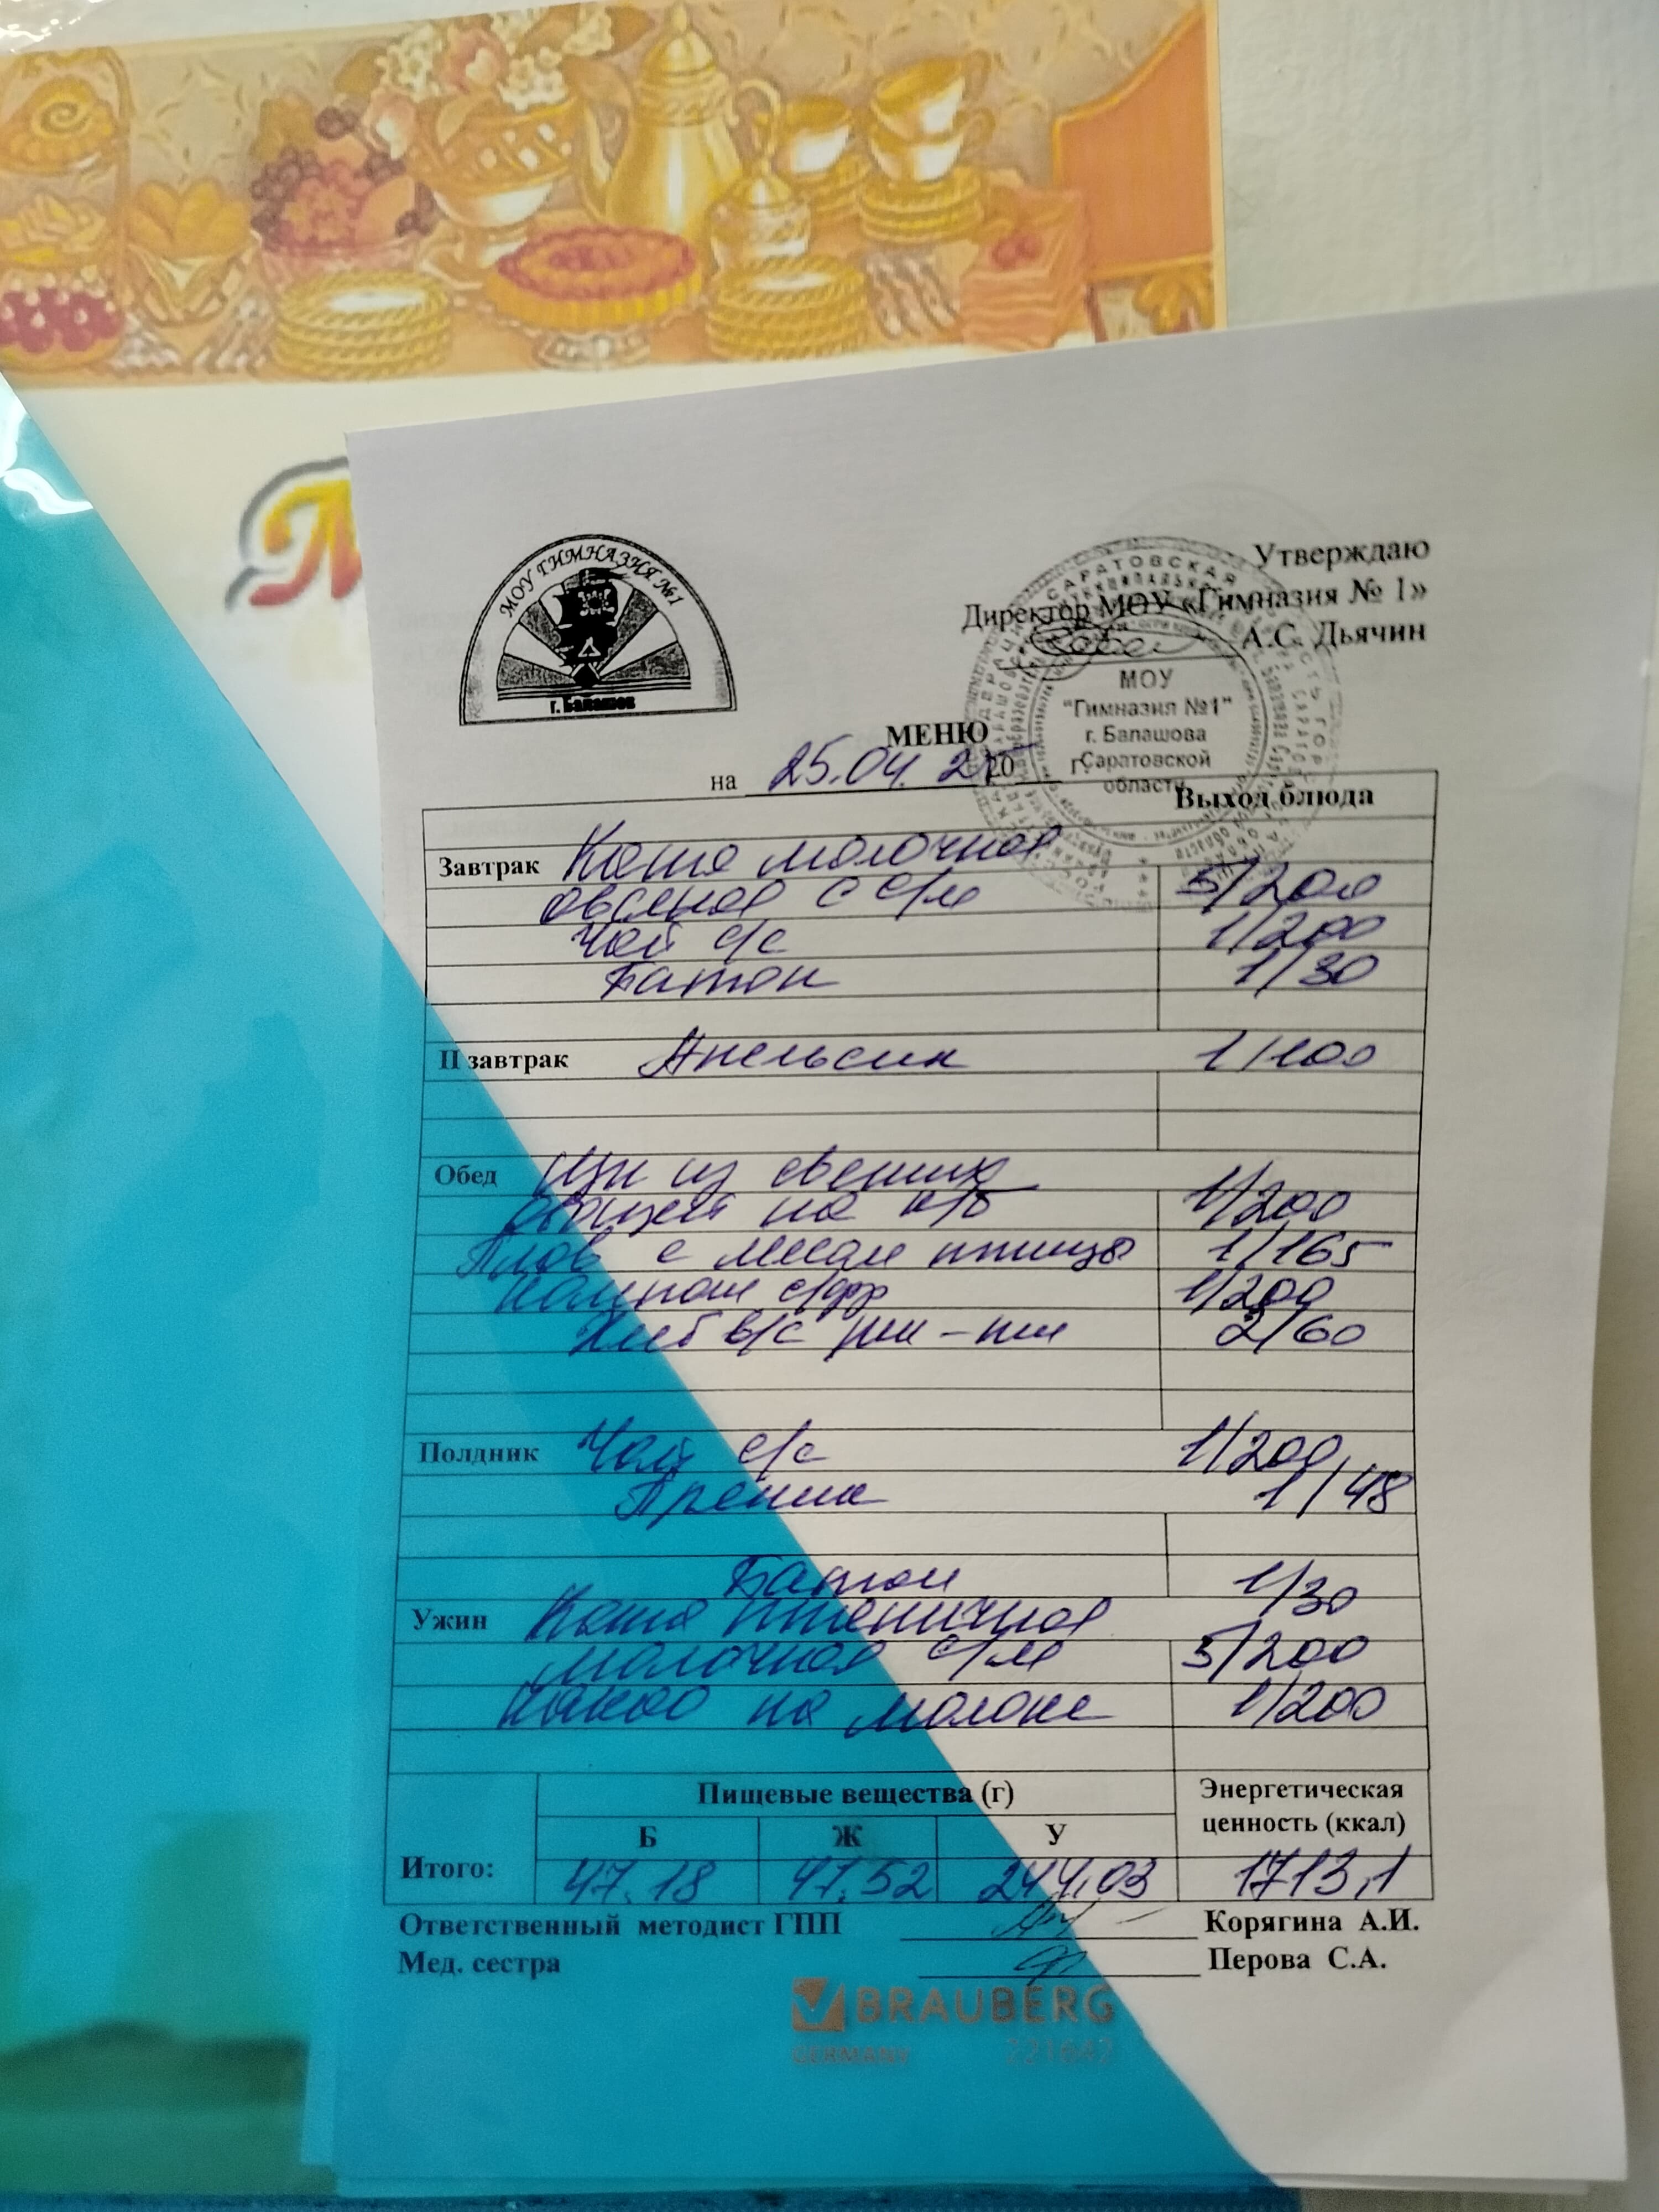 МОУ ГИМНАЗИЯ №1
г. Балашов
Утверждаю
Директор МОУ «Гимназия № 1»
А.С. Дьячин
САРАТОВСКАЯ
МОУ
"Гимназия №1"
г. Балашова
Саратовской
области
МЕНЮ
на 25.04.25 20 г.
Выход блюда
Завтрак Каша молочная
овсяная с с/м 5/200
Чай с/с 1/200
Батон 1/30
II завтрак Апельсин 1/100
Обед Щи из свежих
овощей на к/б 1/200
Плов с мясом птицы 1/165
Компот с/фр 1/200
Хлеб в/с рж-пш 2/60
Полдник Чай с/с 1/200
Пряник 1/48
Батон 1/30
Ужин Каша пшеничная
молочная с/м 5/200
Какао на молоке 1/200
Пищевые вещества (г) Энергетическая
ценность (ккал)
Б Ж У
Итого: 47.18 47.52 244,03 1713,1
Ответственный методист ГПП Корягина А.И.
Мед. сестра Перова С.А.
BRAUBERG
GERMANY 221642